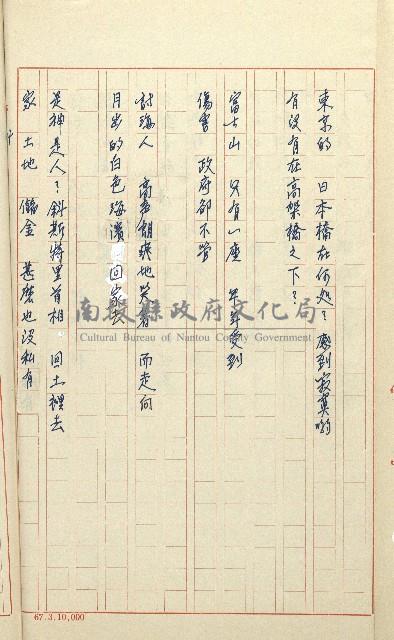 東京的 日本橋在何処？ 感到寂寞喲
有没有在高架橋之下？
富士山 只有一座 年年受到
傷害 政府卻不管
討海人 高声朗爽地笑着 而走向
月出的白色海濱 回家去
是神是人？ 斜斯特里首相 回土裡去
家 土地 儲金 甚麼也没私有
南投縣政府文化局
Cultural Bureau of Nantou County Government
67.3.10,000